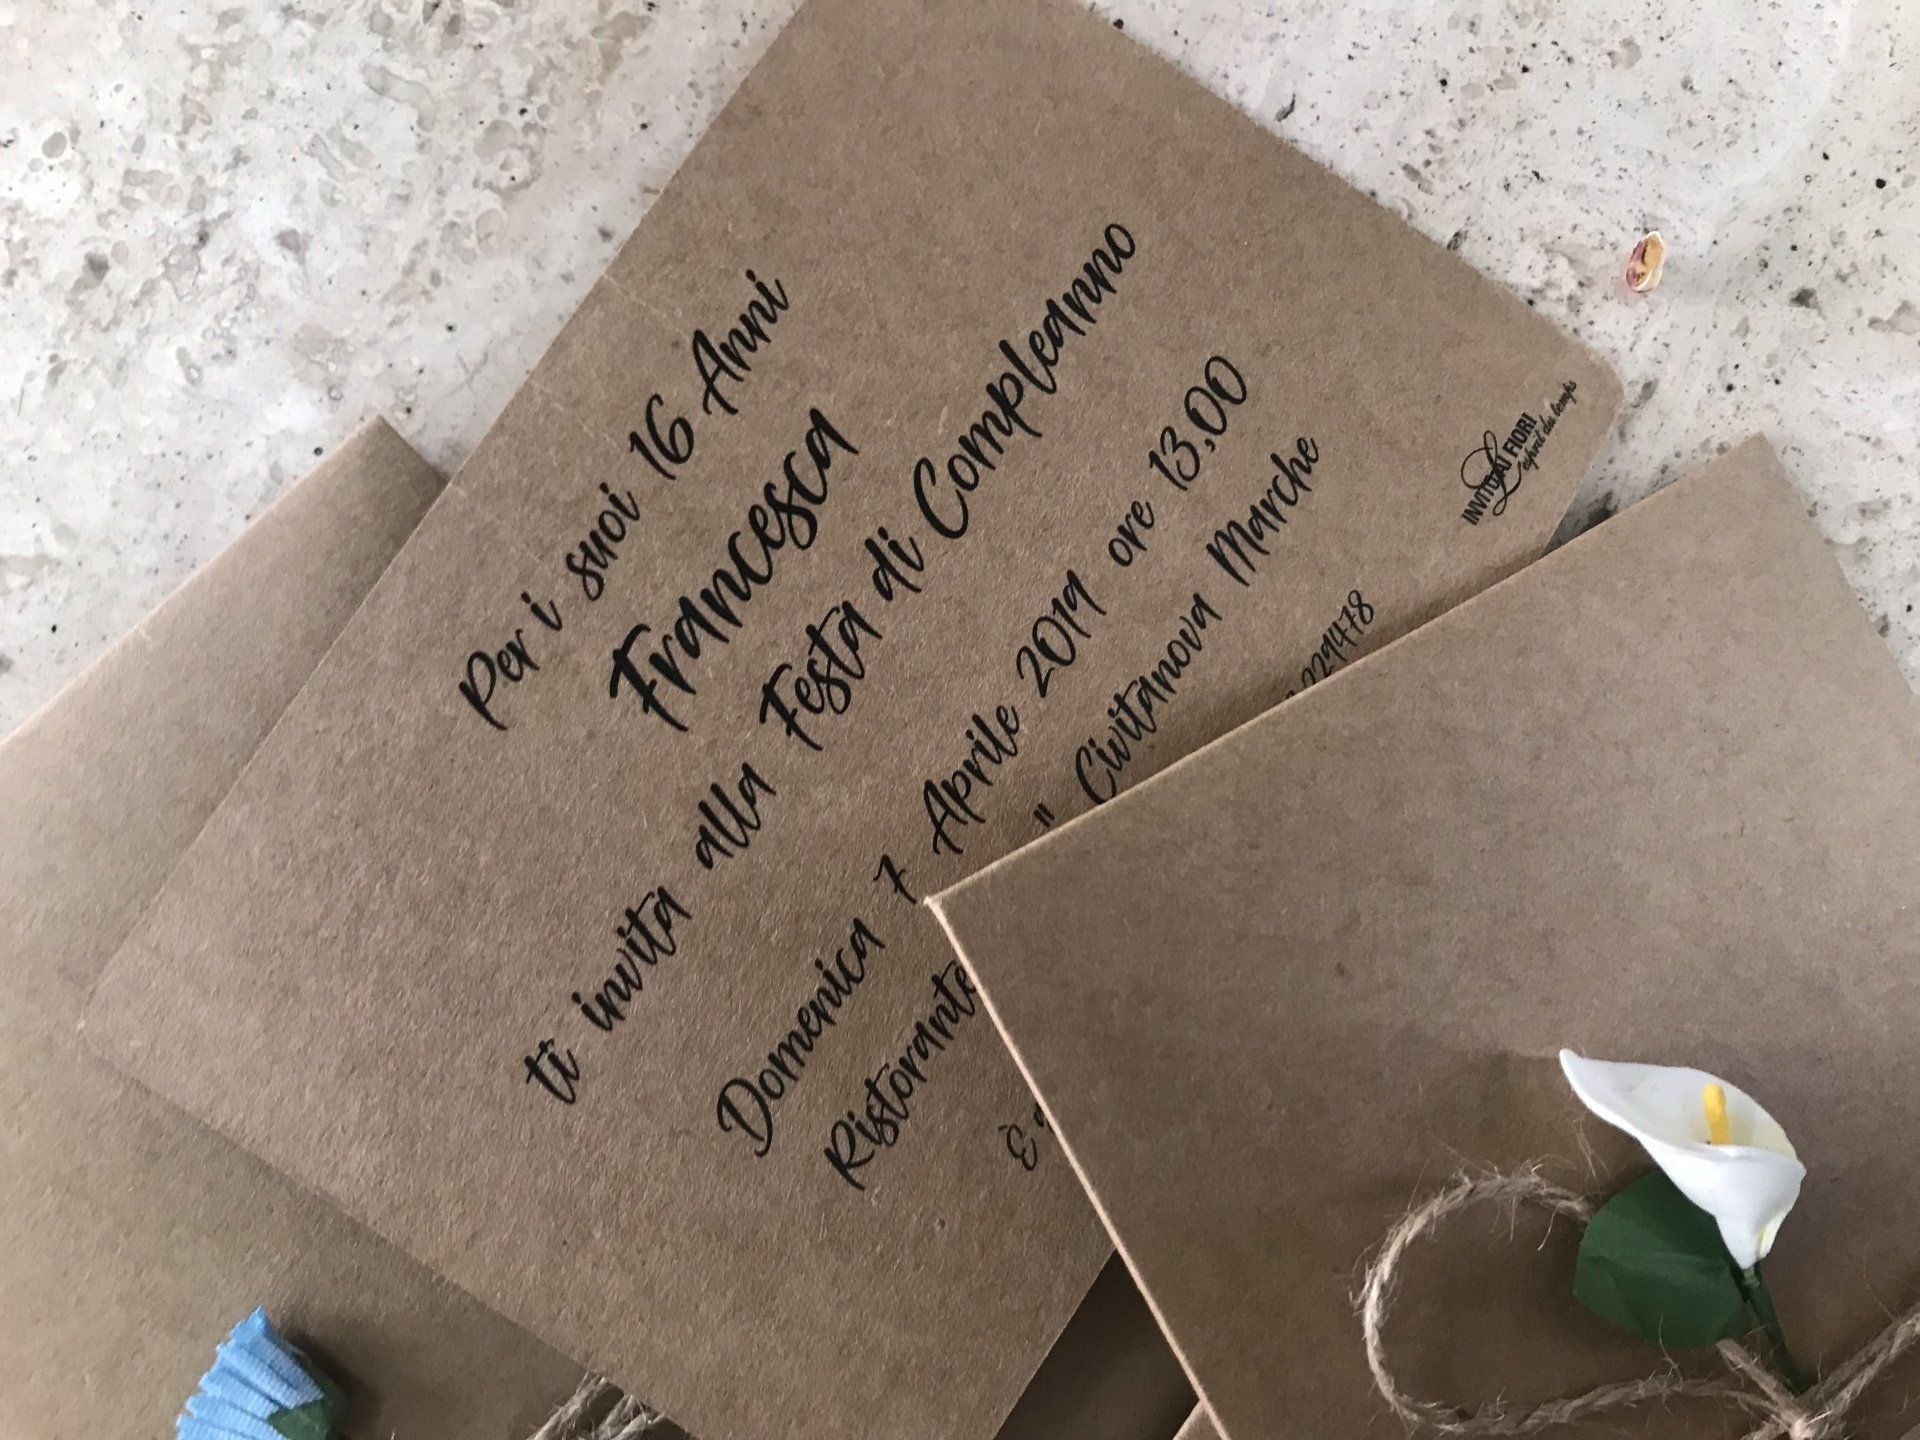 Per i suoi 16 Anni
Francesca
ti invita alla Festa di Compleanno
Domenica 7 Aprile 2019 ore 13,00
Ristorante " Civitanova Marche
È 2291478
INVITIDAI FIORI
L'esprit du temps